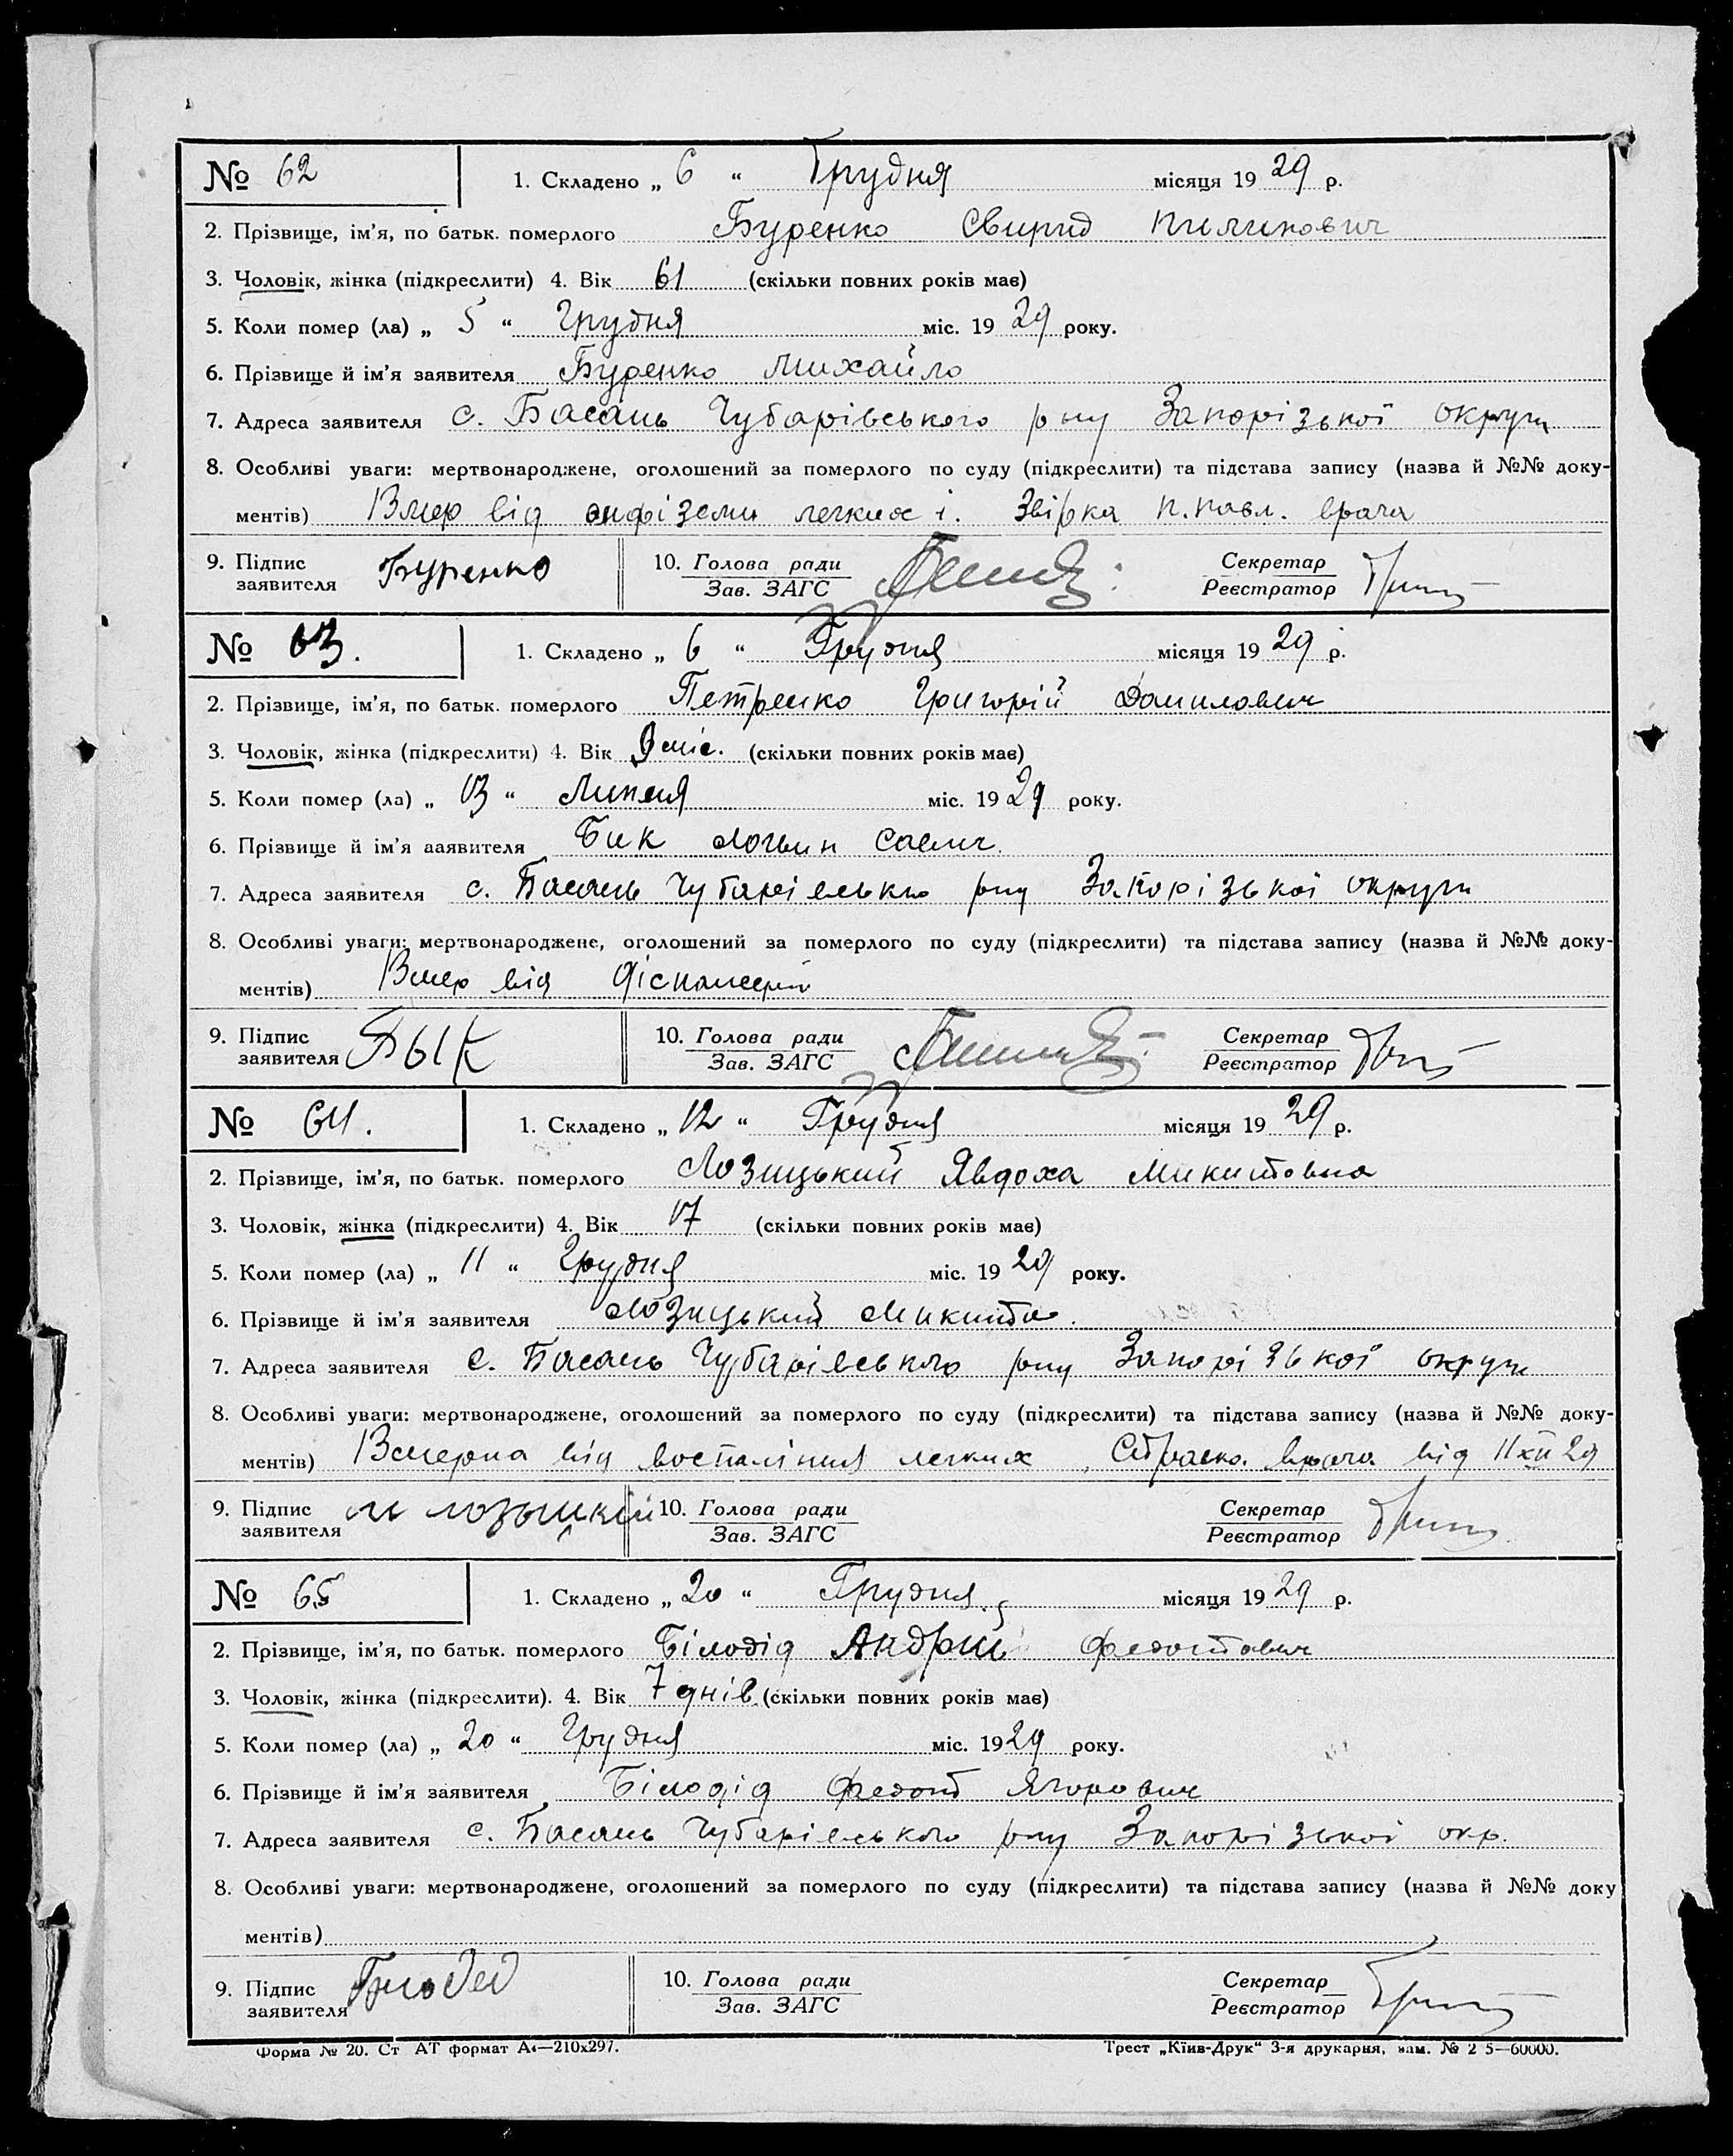 № 62 1. Складено „ 6 “ Грудня місяця 19 29 р.
2. Прізвище, ім’я, по батьк. померлого Буренко Свирид Пилипович
3. Чоловік, жінка (підкреслити) 4. Вік 61 (скільки повних років має)
5. Коли помер (ла) „ 5 “ Грудня міс. 19 29 року.
6. Прізвище й ім’я заявителя Буренко Михайло
7. Адреса заявителя с. Басань Чубарівського р ну Запорізької округи
8. Особливі уваги: мертвонароджене, оголошений за померлого по суду (підкреслити) та підстава запису (назва й №№ доку-
ментів) Вмер від легких врача
9. Підпис заявителя Буренко 10. Голова ради Зав. ЗАГС Секретар Реєстратор
№ 63. 1. Складено „ 6 “ Грудня місяця 19 29 р.
2. Прізвище, ім’я, по батьк. померлого Петренко Григорій Данилович
3. Чоловік, жінка (підкреслити) 4. Вік 9 міс. (скільки повних років має)
5. Коли помер (ла) „ 13 “ Липня міс. 19 29 року.
6. Прізвище й ім’я ааявителя Бик Логвин
7. Адреса заявителя с. Басань Чубарівсько рну Запорізької округи
8. Особливі уваги: мертвонароджене, оголошений за померлого по суду (підкреслити) та підстава запису (назва й №№ доку-
ментів) Вмер від
9. Підпис заявителя Бык 10. Голова ради Зав. ЗАГС Секретар Реєстратор
№ 64. 1. Складено „ 12 “ Грудня місяця 19 29 р.
2. Прізвище, ім’я, по батьк. померлого Лозицький Явдоха Микитовна
3. Чоловік, жінка (підкреслити) 4. Вік 17 (скільки повних років має)
5. Коли помер (ла) „ 11 “ Грудня міс. 19 29 року.
6. Прізвище й ім’я заявителя Лозицький Микита.
7. Адреса заявителя с. Басань Чубарівського рну Запорізької округи
8. Особливі уваги: мертвонароджене, оголошений за померлого по суду (підкреслити) та підстава запису (назва й №№ доку-
ментів) Вмерла від воспаління легких, врача від 11 XII 29
9. Підпис заявителя 10. Голова ради Зав. ЗАГС Секретар Реєстратор
№ 65 1. Складено „ 20 “ Грудня. місяця 19 29 р.
2. Прізвище, ім’я, по батьк. померлого Білодід Андрій Федотович
3. Чоловік, жінка (підкреслити). 4. Вік 7 днів (скільки повних років має)
5. Коли помер (ла) „ 20 “ Грудня міс. 19 29 року.
6. Прізвище й ім’я заявителя Білодід Федот Ягорович
7. Адреса заявителя с. Басань Чубарівського рну Запорізької окр.
8. Особливі уваги: мертвонароджене, оголошений за померлого по суду (підкреслити) та підстава запису (назва й №№ доку
ментів)
9. Підпис заявителя 10. Голова ради Зав. ЗАГС Секретар Реєстратор
Форма № 20. Ст АТ формат А4—210х297. Трест „Київ-Друк“ 3-я друкарня, зам. № 2 5—60000.